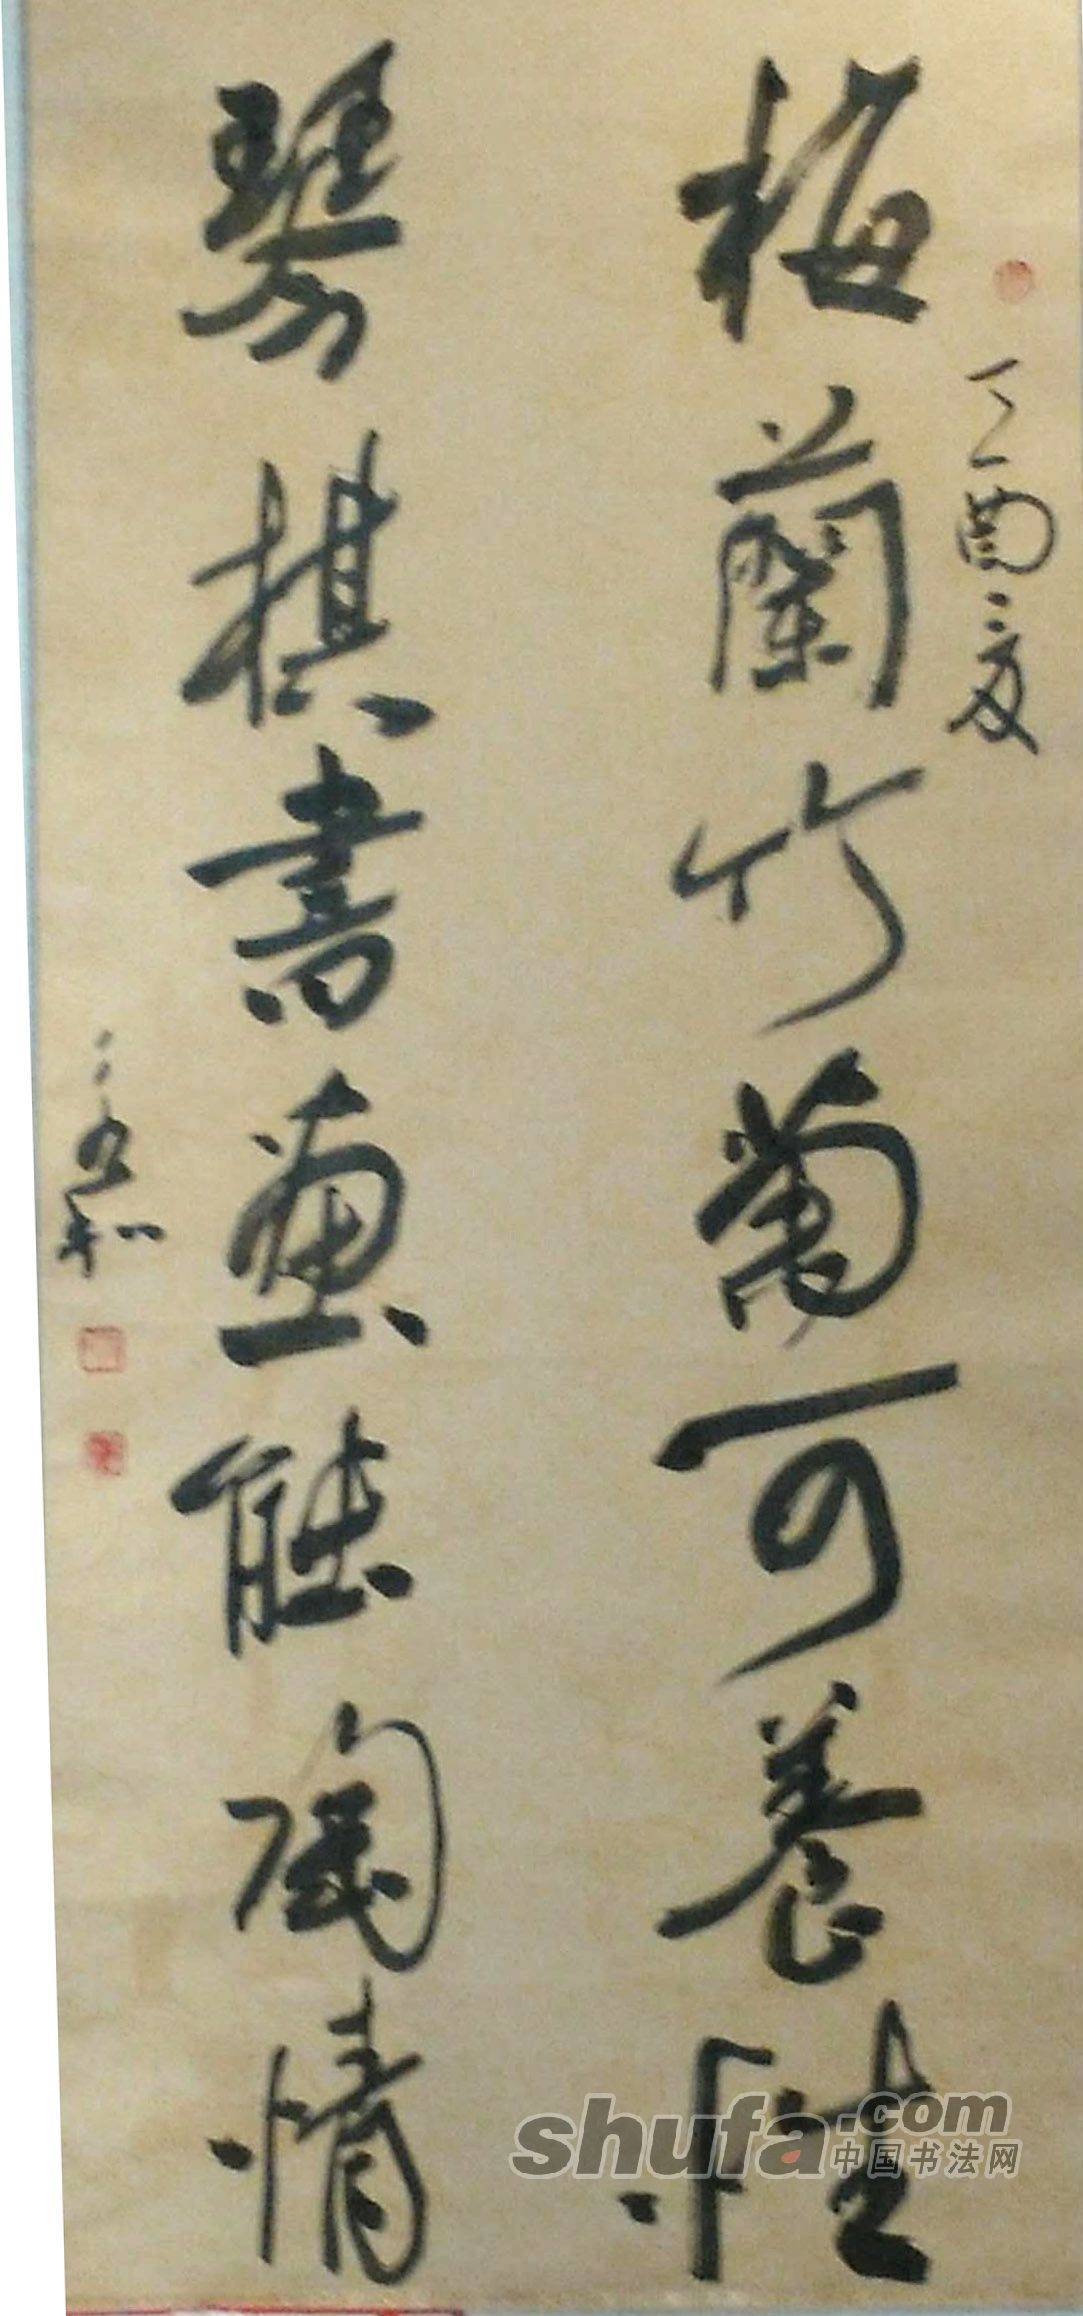 丁酉夏
梅蘭竹菊可養性
琴棋書畫能陶情
shufa.com
中国书法网